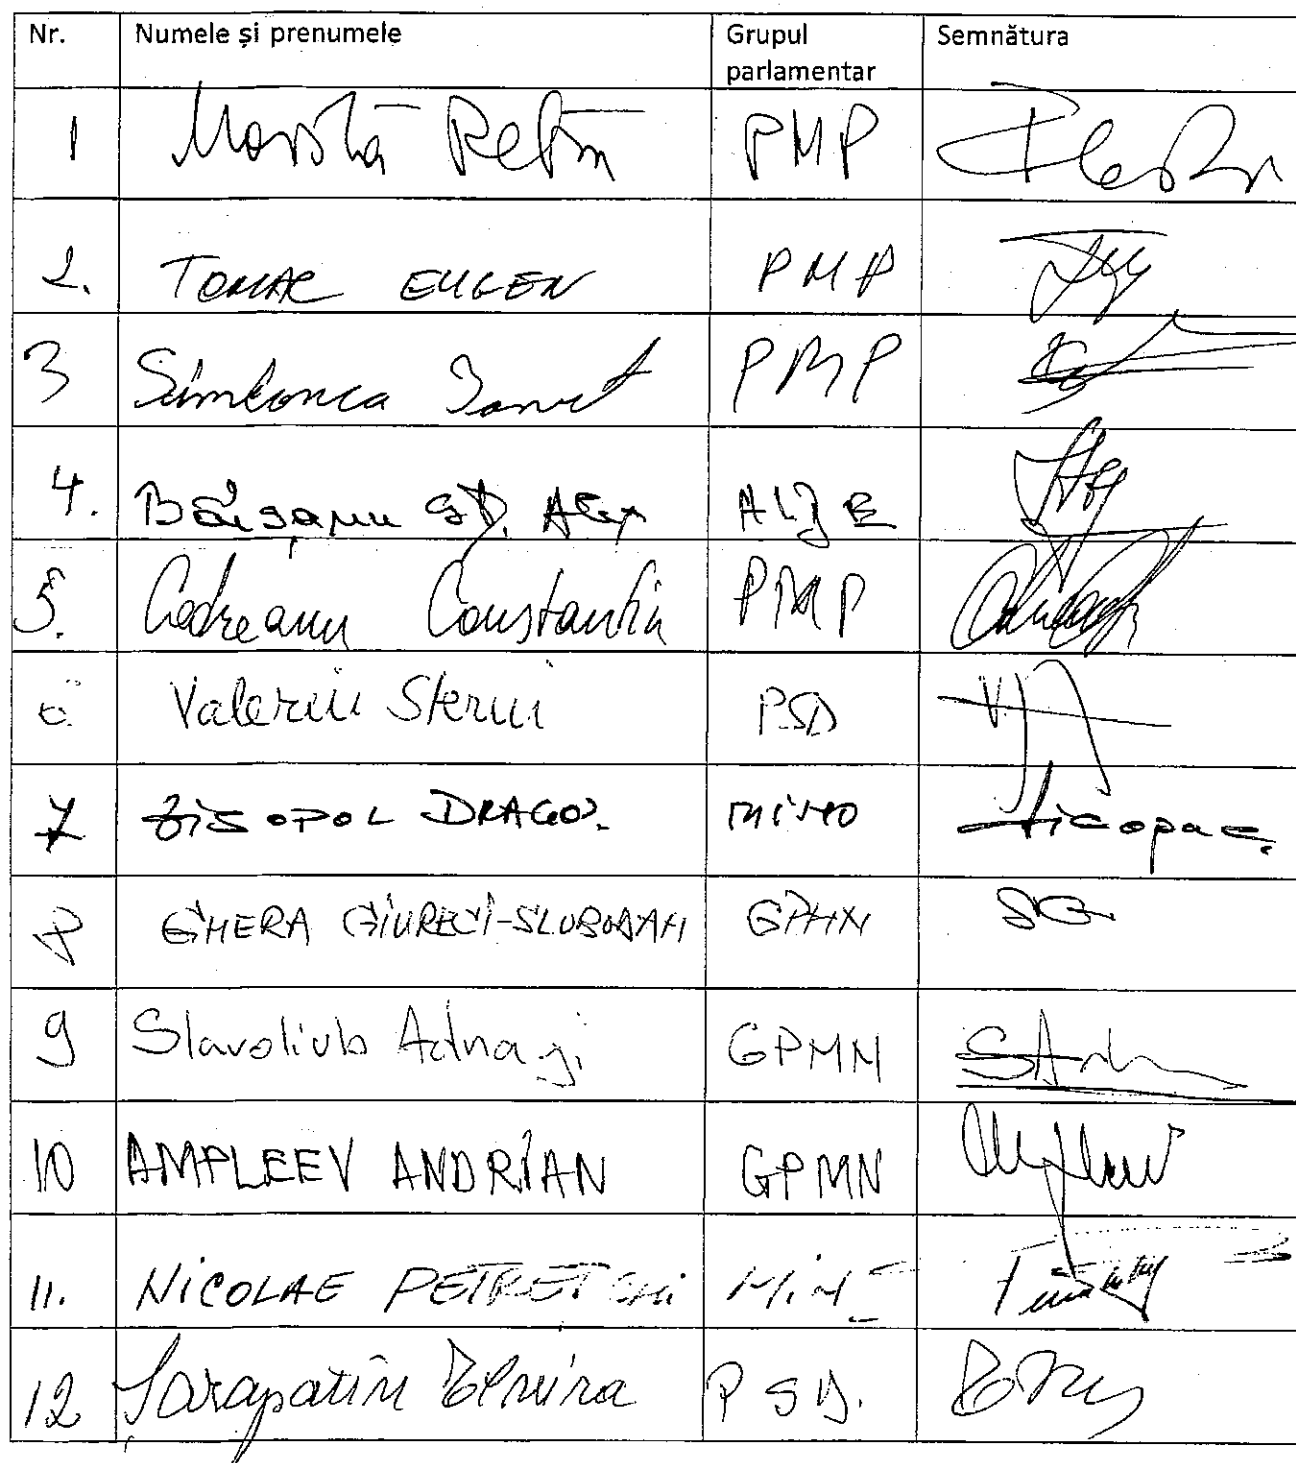 Nr. Numele și prenumele Grupul parlamentar Semnătura
1 Movilă Petru PMP
2. TOMAC EUGEN PMP
3 Simionca Ionuț PMP
4. Băișanu Șt. Alex ALDE
5. Codreanu Constantin PMP
6 Valeriu Steriu PSD
7 ZISOPOL DRAGOȘ. MINO
8 GHERA GIURECI-SLOBODAN GPMN SG
9 Slavoliub Adnagi GPMN
10 AMPLEEV ANDRIAN GPMN
11. NICOLAE PETRETCHI Min
12 Șarapatin Elvira PSD.